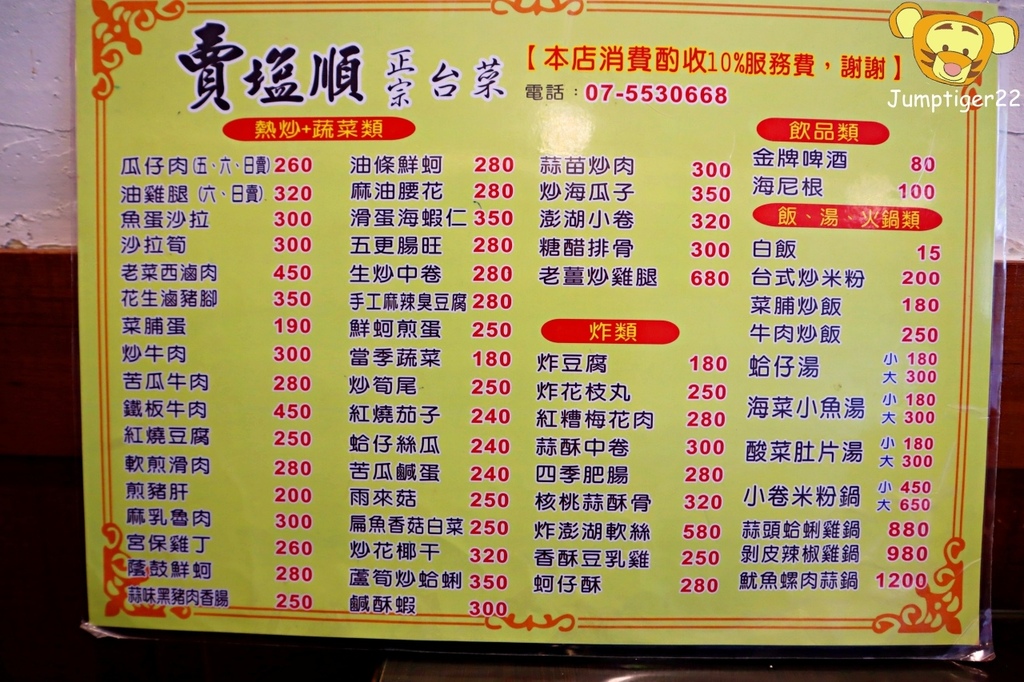 賣塩順 正宗 台菜
【本店消費酌收10%服務費，謝謝】
電話：07-5530668
Jumptiger22
熱炒+蔬菜類
瓜仔肉(五、六、日賣) 260
油雞腿(六、日賣) 320
魚蛋沙拉 300
沙拉筍 300
老菜西滷肉 450
花生滷豬腳 350
菜脯蛋 190
炒牛肉 300
苦瓜牛肉 280
鐵板牛肉 450
紅燒豆腐 250
軟煎滑肉 280
煎豬肝 200
麻乳魯肉 300
宮保雞丁 260
蔭鼓鮮蚵 280
蒜味黑豬肉香腸 250
油條鮮蚵 280
麻油腰花 280
滑蛋海蝦仁 350
五更腸旺 280
生炒中卷 280
手工麻辣臭豆腐 280
鮮蚵煎蛋 250
當季蔬菜 180
炒筍尾 250
紅燒茄子 240
蛤仔絲瓜 240
苦瓜鹹蛋 240
雨來菇 250
扁魚香菇白菜 250
炒花椰干 320
蘆筍炒蛤蜊 350
鹹酥蝦 300
蒜苗炒肉 300
炒海瓜子 350
澎湖小卷 320
糖醋排骨 300
老薑炒雞腿 680
炸類
炸豆腐 180
炸花枝丸 250
紅糟梅花肉 280
蒜酥中卷 300
四季肥腸 280
核桃蒜酥骨 320
炸澎湖軟絲 580
香酥豆乳雞 250
蚵仔酥 280
飲品類
金牌啤酒 80
海尼根 100
飯、湯、火鍋類
白飯 15
台式炒米粉 200
菜脯炒飯 180
牛肉炒飯 250
蛤仔湯 小 180 大 300
海菜小魚湯 小 180 大 300
酸菜肚片湯 小 180 大 300
小卷米粉鍋 小 450 大 650
蒜頭蛤蜊雞鍋 880
剝皮辣椒雞鍋 980
魷魚螺肉蒜鍋 1200